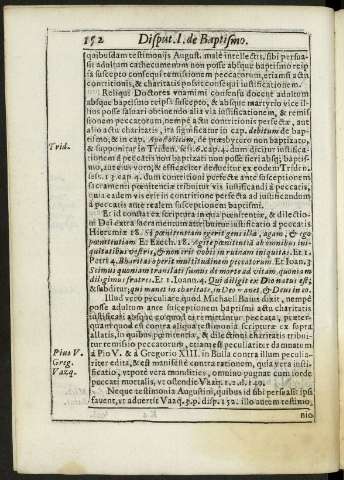 152 Disput. I. de Baptismo.
quibusdam testimonijs August. malè intellectis, sibi persua-
sit adultum cathecumenum non posse absque baptismo reip-
sa suscepto consequi remissionem peccatorum, etiamsi actu
contritionis, & charitatis possit consequi iustificationem.
Reliqui Doctores vnanimi consensu docent adultum
absque baptismo reipsa suscepto, & absque martyrio vice il-
lius posse saluari obtinendo alia via iustificationem, & remis-
sionem peccatorum, nempè actu contritionis perfectæ, aut
alio actu charitatis, ita significatur in cap. debitum de bap-
tismo, & in cap. Apostolicam, de præsbytero non baptizato,
Trid. & supponitur in Triden. sess. 6. cap. 4. dum dicitur iustifica-
tionem à peccatis non baptizati non posse fieri absq; baptis-
mo, aut eius voto, & efficaciter deducitur ex eodem Triden.
sess. 14. cap 4. dum contritioni perfectæ ante susceptionem
sacramenti pœnitentiæ tribuitur vis iustificandi à peccatis,
quia eadem vis erit in contritione perfecta ad iustificandum
à peccatis ante realem susceptionem baptismi.
Et id constat ex scriptura in qua pœnitentiæ, & dilectio-
ni Dei extra sacramentum attribuitur iustificatio à peccatis
Hieremiæ 18. Si pœnitentiam egerit gens illa, agam, & ego
pœnitentiam Et Ezech. 18. Agite pœnitentiã ab omnibus ini-
quitatibus vestris, & non erit vobis in ruinam iniquitas. Et 1.
Petri 4. Charitas operit multitudinem peccatorum. Et Ioan. 3
Scimus quoniam translati sumus de morte ad vitam, quoniam
diligimus fratres. Et 1. Ioann. 4. Qui diligit ex Deo natus est;
& subditur, qui manet in charitate, in Deo manet, & Deus in eo.
Illud verò peculiare quod Michael Baius dixit, nempè
posse adultum ante susceptionem baptismi actu charitatis
iustificati absque eo quod ei remittantur peccata, præter-
quamquod est contra aliqua testimonia scripturæ ex supra
allatis, in quibus pœnitentiæ, & dilectioni charitatis tribui-
tur remissio peccatorum, etiam est peculiariter damnatum
Pius V. à Pio V. & à Gregorio XIII. in Bulla contra illum peculia-
Greg. riter edita, & est manifestè contra rationem, quia vera iusti-
Vazq. ficatio, vtpotè vera mundities, omnino pugnat cum sorde
peccati mortalis, vt ostendit Vazq. 1.2. d. 140.
Neque testimonia Augustini, quibus id sibi persuasit ipsi
fauent, vt aduertit Vazq. 3. p. disp. 152. illo autem testimo-
nio